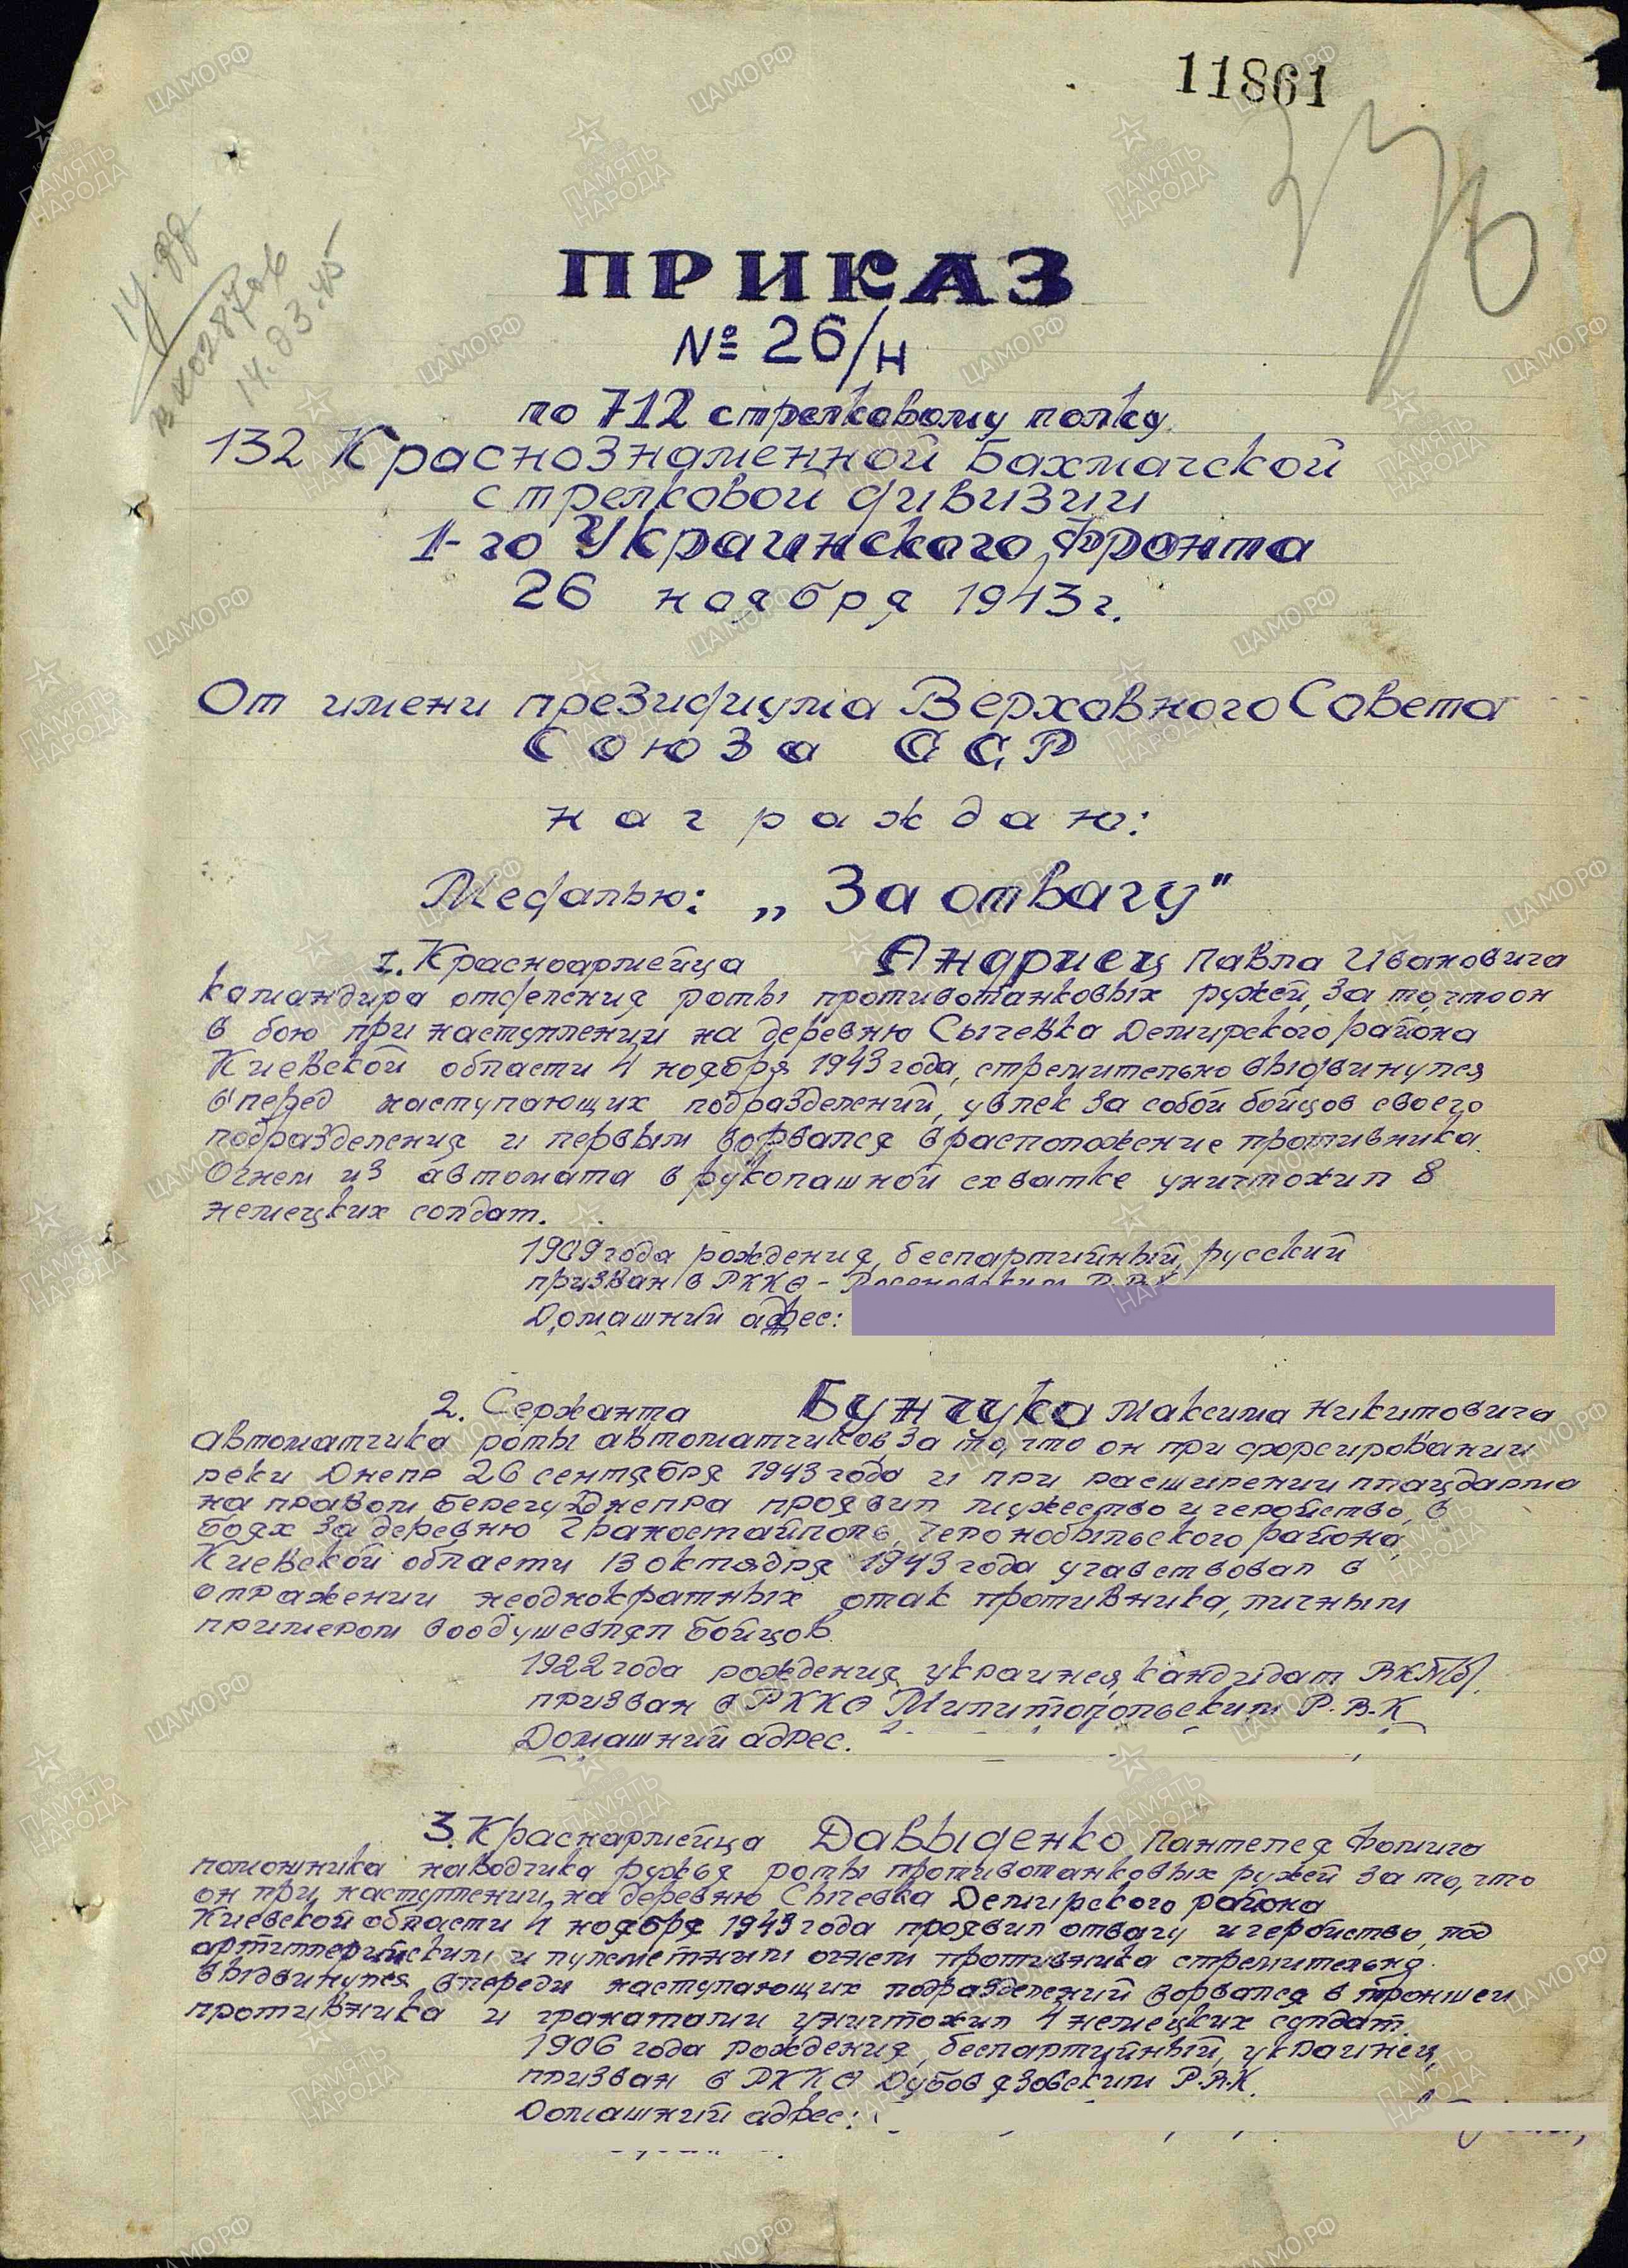 11861
376
14.03.45
ПРИКАЗ
№ 26/н
по 712 стрелковому полку
132 Краснознаменной Бахмачской
стрелковой дивизии
1-го Украинского Фронта
26 ноября 1943 г.
От имени президиума Верховного Совета
Союза ССР
награждаю:
Медалью: „За отвагу"
1. Красноармейца Андриец Павла Ивановича
командира отделения роты противотанковых ружей, за то, что он
в бою при наступлении на деревню Сычевка Демирского района
Киевской области 4 ноября 1943 года, стремительно выдвинулся
вперед наступающих подразделений, увлек за собой бойцов своего
подразделения и первым ворвался в расположение противника.
Огнем из автомата в рукопашной схватке уничтожил 8
немецких солдат.
1909 года рождения, беспартийный, русский
призван в РККА - Р.В.К.
Домашний адрес:
2. Сержанта Бунчука Максима Никитовича
автоматчика роты автоматчиков, за то, что он при форсировании
реки Днепр 26 сентября 1943 года и при расширении плацдарма
на правом берегу Днепра проявил мужество и геройство, в
боях за деревню Граностайполь, Чернобыльского района,
Киевской области 13 октября 1943 года учавствовал в
отражении неоднократных атак противника, личным
примером воодушевлял бойцов.
1922 года рождения, украинец, кандидат ВКП(б).
призван в РККА Милитопольским Р.В.К
Домашний адрес.
3. Краснармейца Давыденко Пантелея Фомича
помошника наводчика ружья роты противотанковых ружей за то, что
он при наступлении, на деревню Сычевка Демирского района
Киевской области 4 ноября 1943 года проявил отвагу и геройство, под
артиллерийским и пулеметным огнем противника стремительно
выдвинулся впереди наступающих подразделений ворвался в траншеи
противника и гранатами уничтожил 4 немецких солдат.
1906 года рождения, беспартийный, украинец,
призван в РККА Дубовязовским Р.В.К.
Домашний адрес: